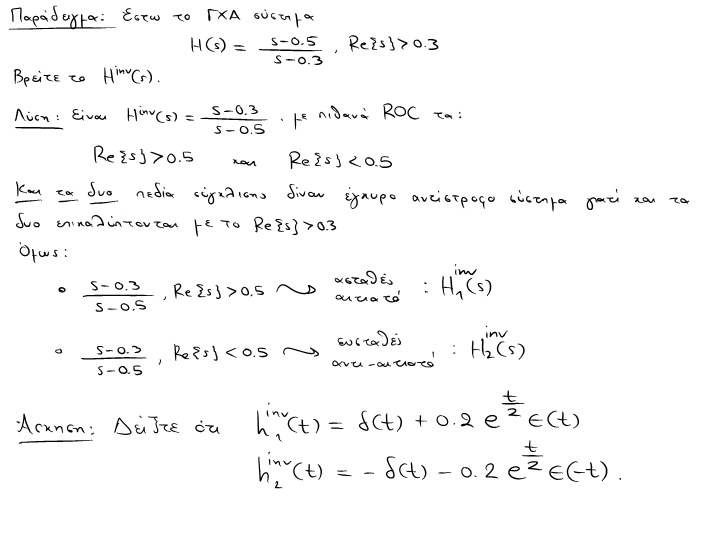 Παράδειγμα: Έστω το ΓΧΑ σύστημα
H(s) = \frac{s-0.5}{s-0.3} , Re{s}>0.3
Βρείτε το H^{inv}(s).
Λύση: Είναι H^{inv}(s) = \frac{s-0.3}{s-0.5} . με πιθανά ROC τα:
Re{s}>0.5 και Re{s}<0.5
Και τα δυο πεδία σύγκλισης δίνουν έγκυρο αντίστροφο σύστημα γιατί και τα
δυο επικαλύπτονται με το Re{s}>0.3
Όμως:
• \frac{s-0.3}{s-0.5} , Re{s}>0.5 ⟿ ασταθές αιτιατό : H_1^{inv}(s)
• \frac{s-0.3}{s-0.5} , Re{s}<0.5 ⟿ ευσταθές αντι-αιτιατό : H_2^{inv}(s)
Άσκηση: Δείξτε ότι h_1^{inv}(t) = δ(t) + 0.2 e^{\frac{t}{2}} ε(t)
h_2^{inv}(t) = - δ(t) - 0.2 e^{\frac{t}{2}} ε(-t).